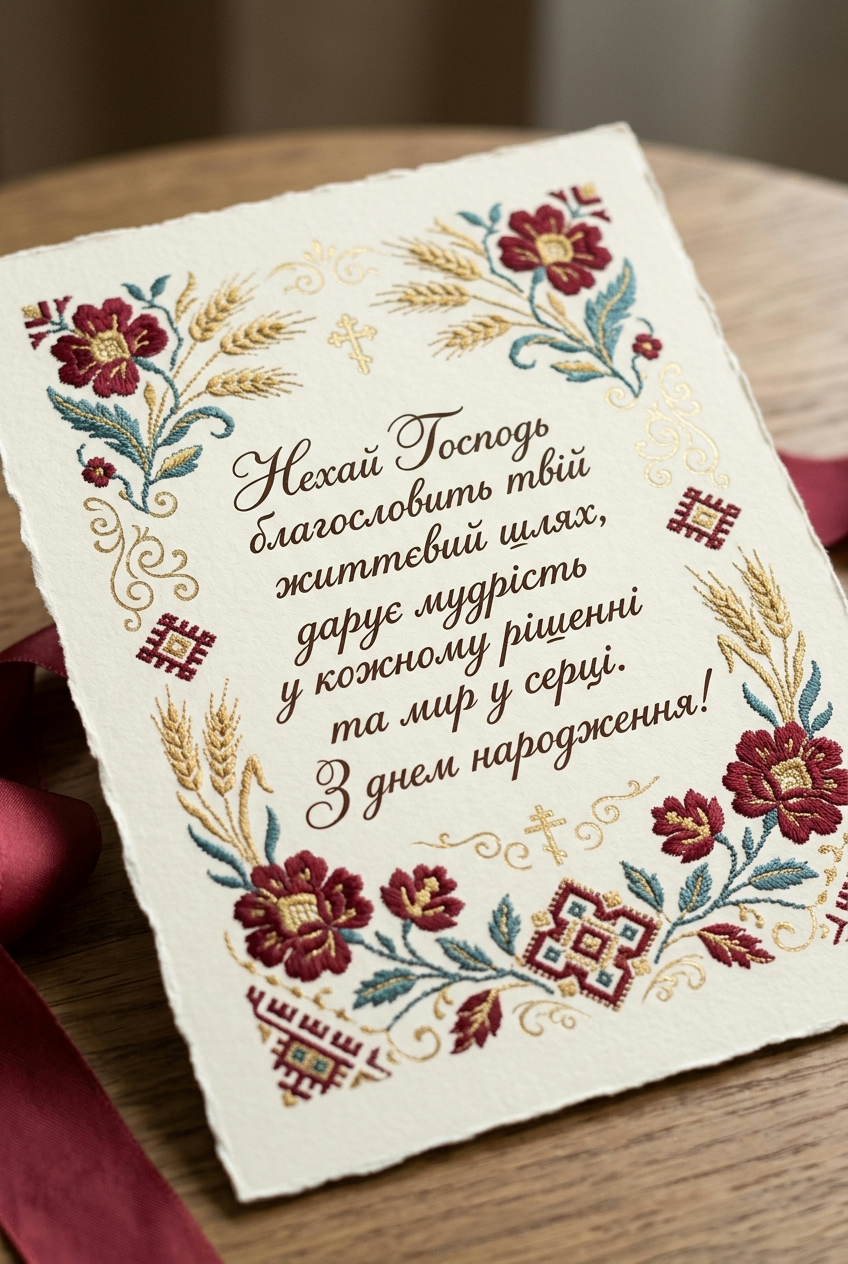 Нехай Господь
благословить твій
життєвий шлях,
дарує мудрість
у кожному рішенні
та мир у серці.
З днем народження!